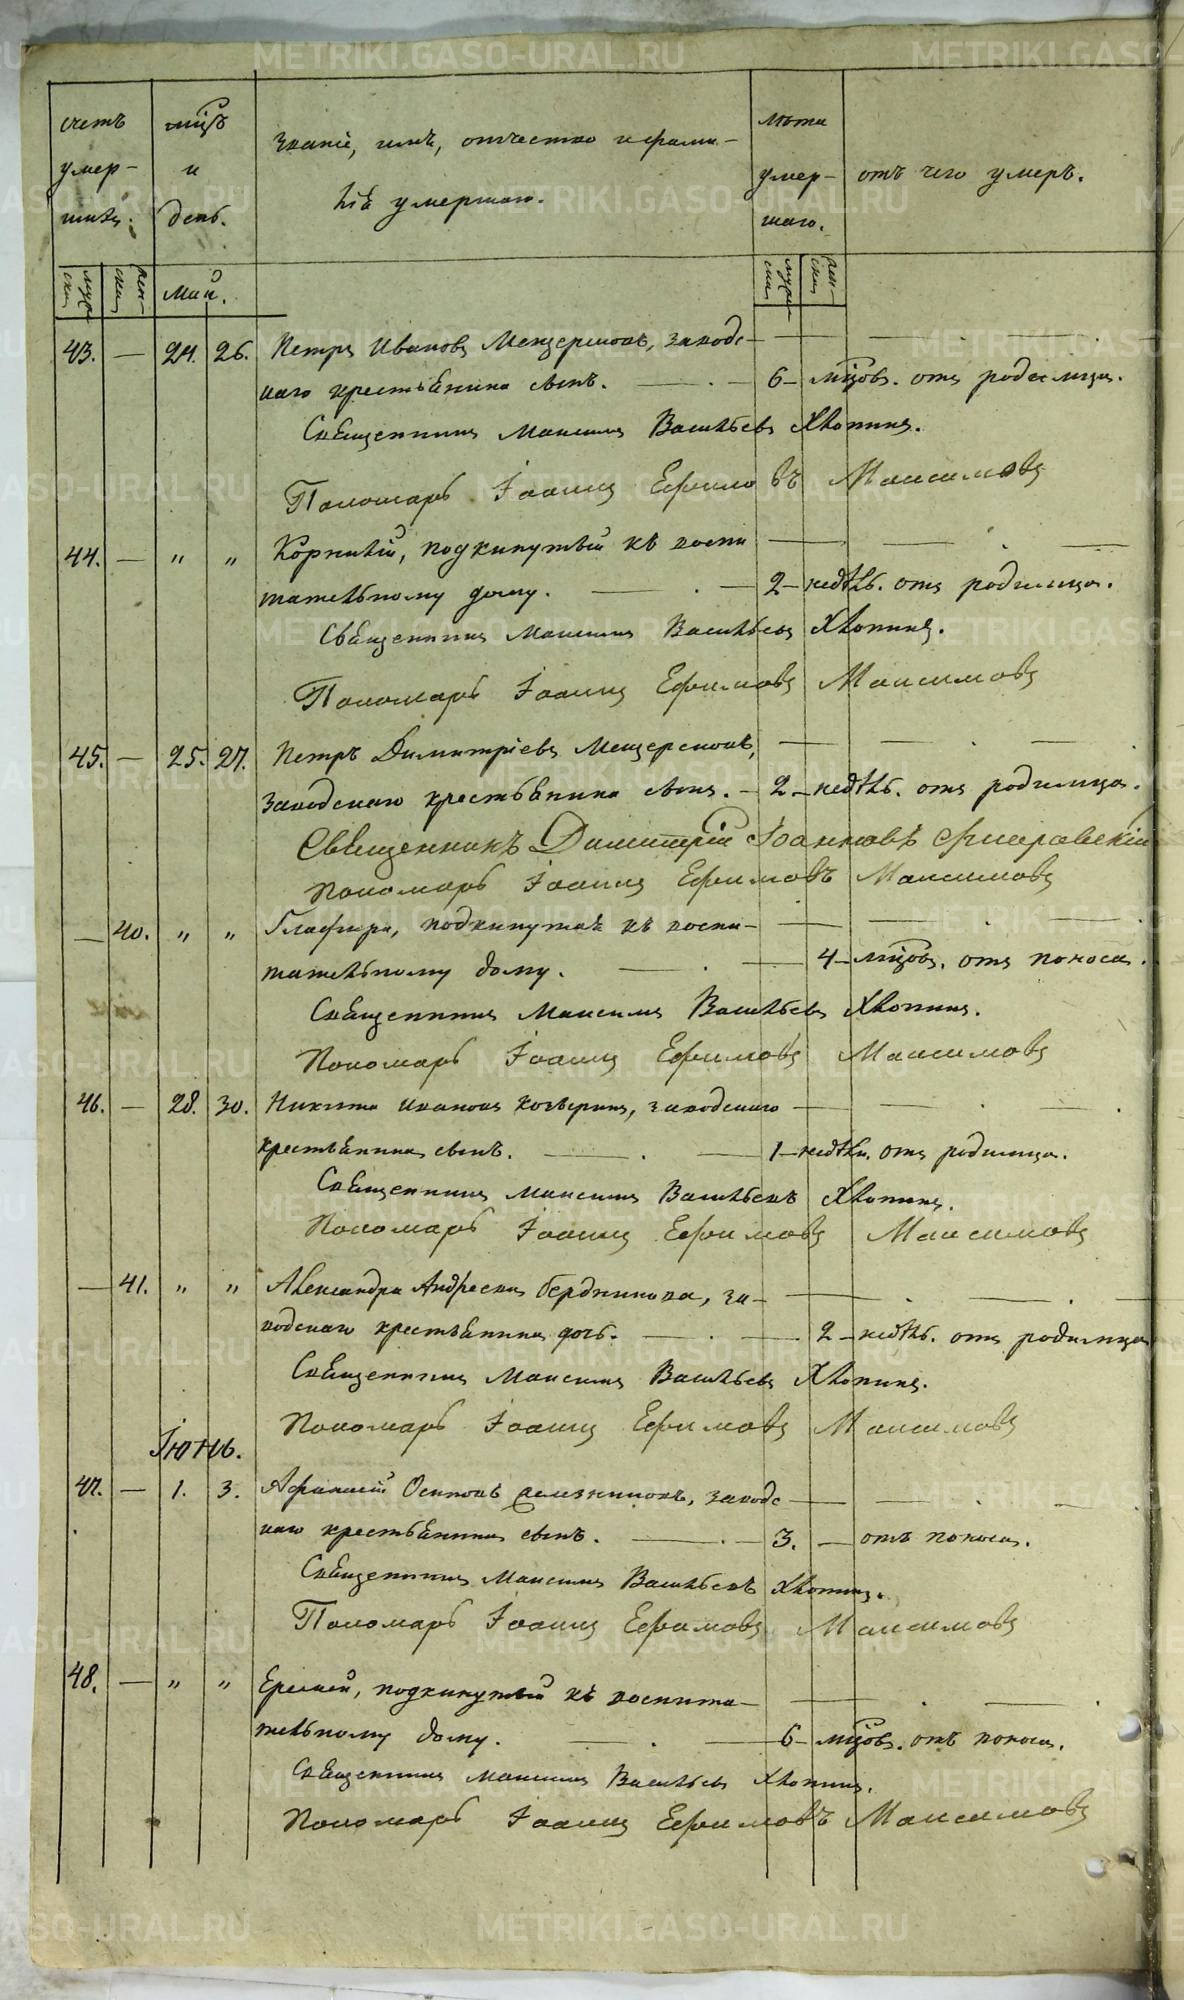 счетъ умер- шихъ.
мцъ и день.
Званіе, имя, отчество и фами-
лія умершаго.
лѣта умер- шаго.
отъ чего умеръ.
муже- ски
жен- ски
Май.
муже- ски
жен- ски
43. — 24. 26. Петръ Ивановъ Мещеряковъ, заводс-
каго крестьянина сынъ. — 6 — мцовъ. отъ родимца.
Священникъ Максимъ Васильевъ Хлопинъ.
Пономарь Іоаннъ Ефимовъ Максимовъ
44. — " " Корнилій, подкинутый къ воспи
тательному дому. — 2 — недѣль. отъ родимца.
Священникъ Максимъ Васильевъ Хлопинъ.
Пономарь Іоаннъ Ефимовъ Максимовъ
45. — 25. 27. Петръ Димитріевъ Мещеряковъ,
заводскаго крестьянина сынъ. — 2 — недѣль. отъ родимца.
Священникъ Димитрій Іоанновъ
Пономарь Іоаннъ Ефимовъ Максимовъ
— 40. " " Глафира, подкинутая къ воспи-
тательному дому. — 4 — мцовъ. отъ поноса.
Священникъ Максимъ Васильевъ Хлопинъ.
Пономарь Іоаннъ Ефимовъ Максимовъ
46. — 28. 30. Никита Ивановъ заводскаго
крестьянина сынъ. — 1 — недѣли. отъ родимца.
Священникъ Максимъ Васильевъ Хлопинъ.
Пономарь Іоаннъ Ефимовъ Максимовъ
— 41. " " Александра Андреева Бердникова, за-
водскаго крестьянина дочь. — 2 — недѣль. отъ родимца
Священникъ Максимъ Васильевъ Хлопинъ.
Пономарь Іоаннъ Ефимовъ Максимовъ
Іюнь.
47. — 1. 3. Афанасій Осиповъ заводс
каго крестьянина сынъ. — 3. — отъ поноса.
Священникъ Максимъ Васильевъ Хлопинъ.
Пономарь Іоаннъ Ефимовъ Максимовъ
48. — " " Еремей, подкинутый къ воспита-
тельному дому. — 6 — мцовъ. отъ поноса.
Священникъ Максимъ Васильевъ Хлопинъ.
Пономарь Іоаннъ Ефимовъ Максимовъ
METRIKI.GASO-URAL.RU